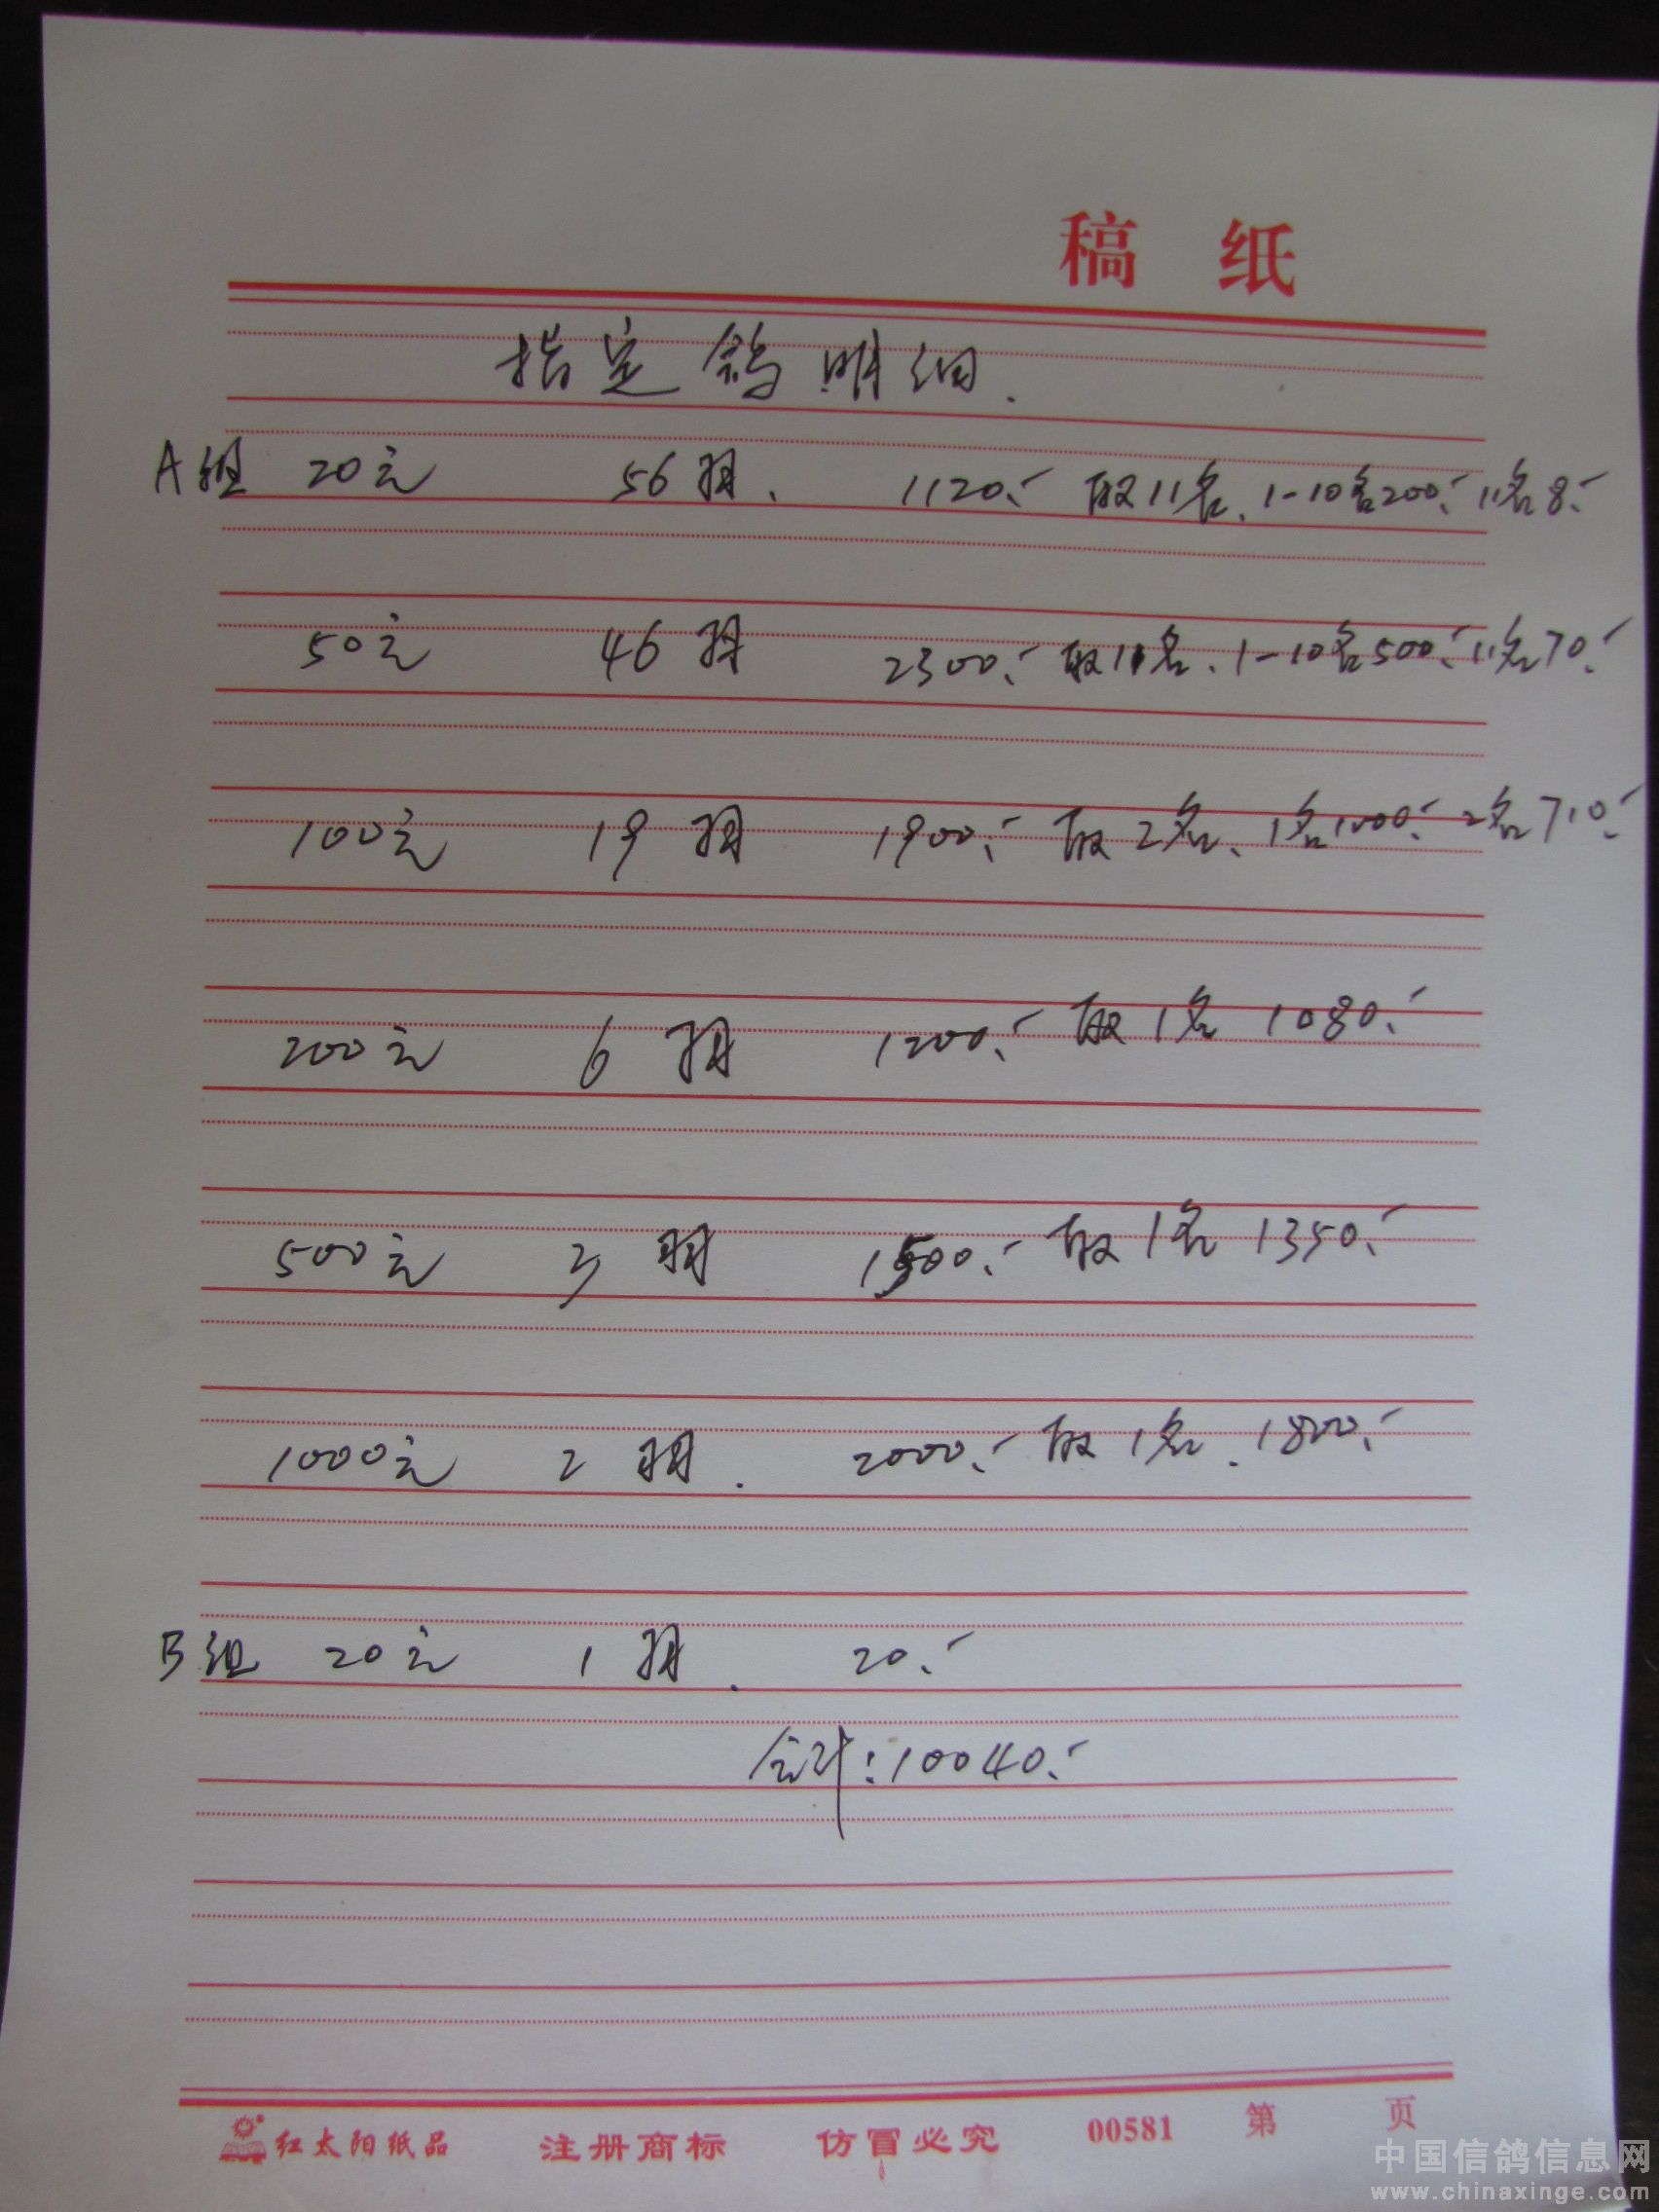 稿 纸
指定鸽明细.
A组 20元 56羽. 1120.- 取11名、1-10名200.- 11名8.-
50元 46羽 2300.- 取11名、1-10名500.- 11名70.-
100元 19羽 1900.- 取2名、1名1000.- 2名710.-
200元 6羽 1200.- 取1名 1080.-
500元 3羽 1500.- 取1名 1350.-
1000元 2羽. 2000.- 取1名. 1800.-
B组 20元 1羽. 20.-
合计:10040.-
红太阳纸品 注册商标 仿冒必究 00581 第 页
中国信鸽信息网
www.chinaxinge.com